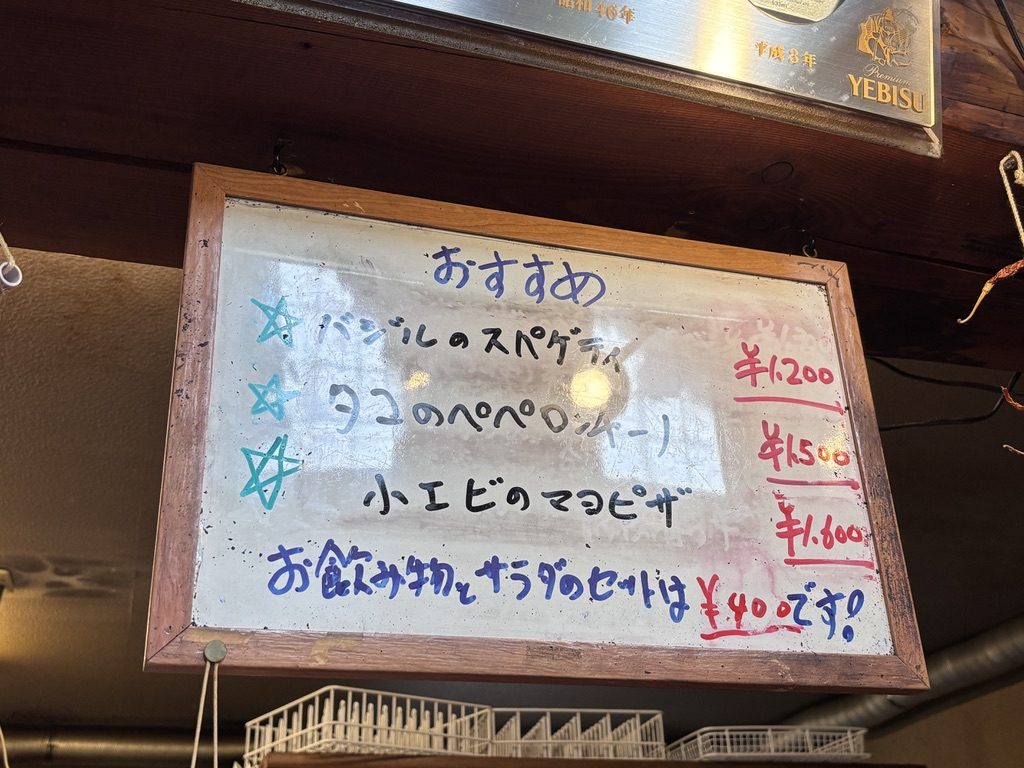 昭和46年
平成3年
Premium
YEBISU
おすすめ
バジルのスパゲティ ¥1.200
タコのペペロンチーノ ¥1.500
小エビのマヨピザ ¥1.600
お飲み物とサラダのセットは¥400です!